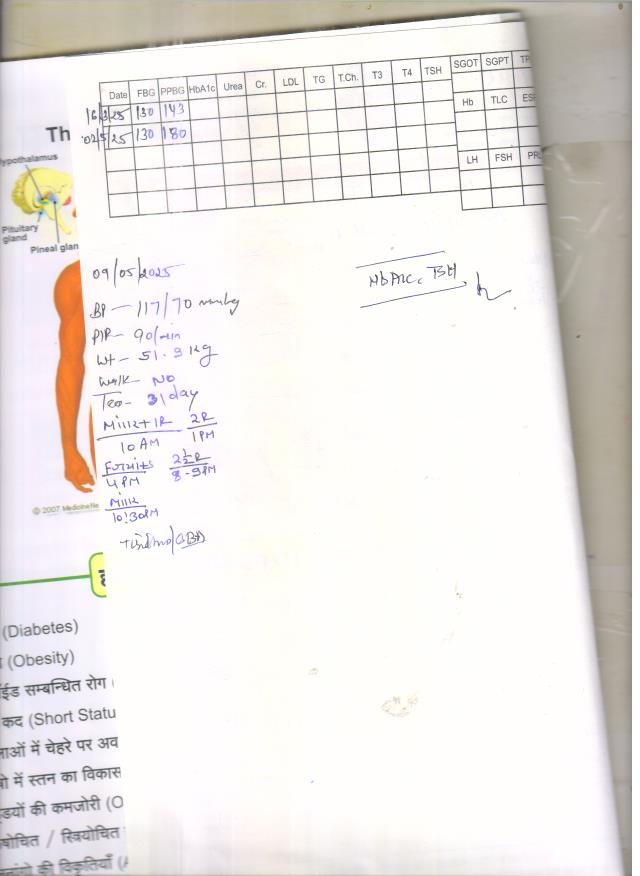 Date FBG PPBG HbA1c Urea Cr. LDL TG T.Ch. T3 T4 TSH SGOT SGPT
16/3/25 130 143
02/5/25 130 180
Hb TLC
LH FSH
Th
ypothalamus
Pituitary
gland
Pineal glan
© 2007 MedicineNe
09/05/2025
BP - 117/70 mmHg
P/R - 90/min
Wt - 51.9 kg
Walk - NO
Tea - 3/day
Milk + 1R 2R
10 AM 1 PM
Fruits 2½R
4 PM 8-9 PM
Milk
10:30 PM
HbA1c, TSH
(Diabetes)
(Obesity)
ईड सम्बन्धित रोग।
कद (Short Statu
ाओं में चेहरे पर अव
ो में स्तन का विकास
डयों की कमजोरी (O
षोचित / स्त्रियोचित
की विकृतियाँ (